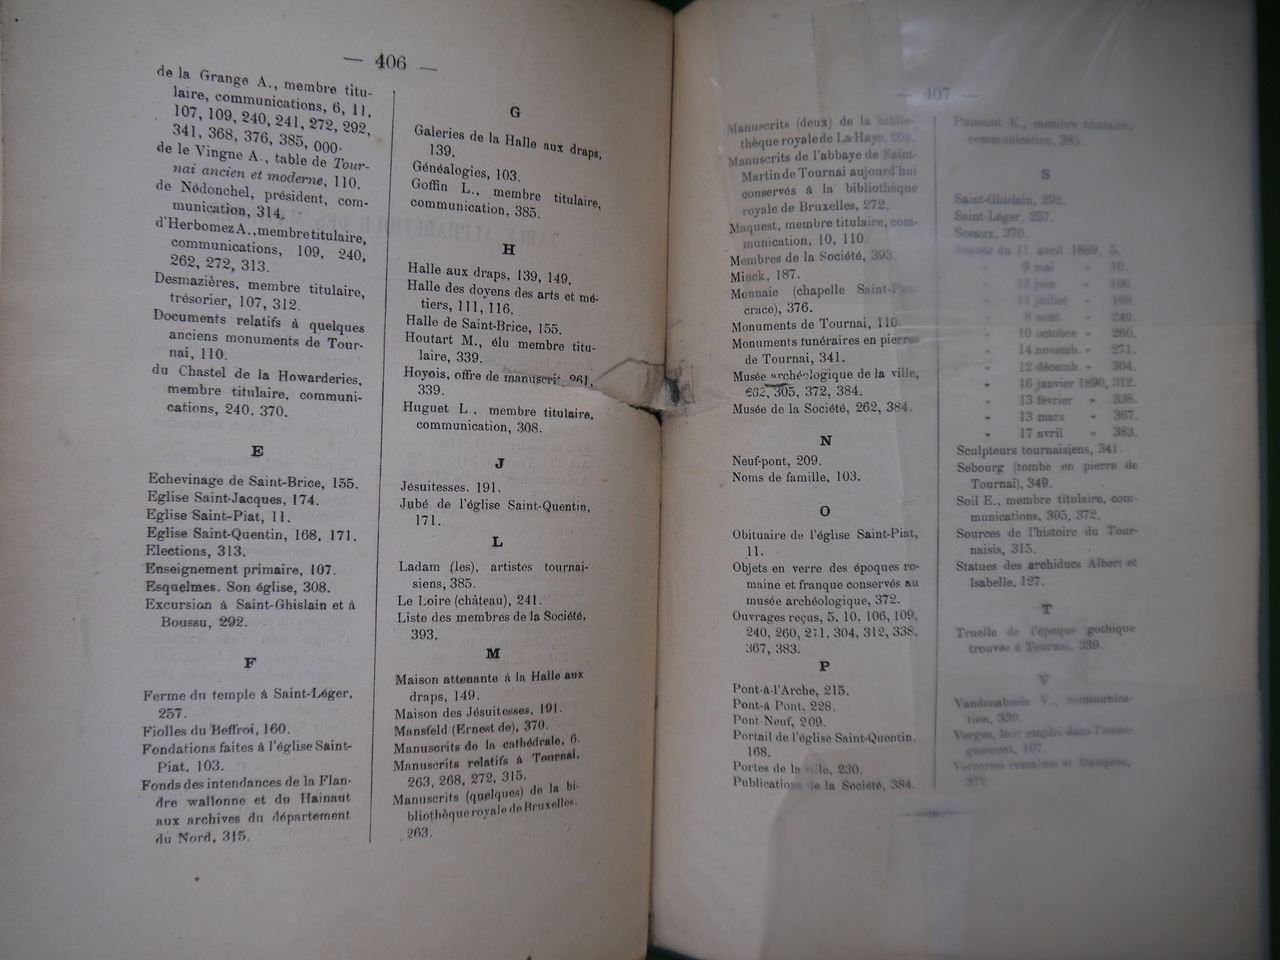 — 406 —
de la Grange A., membre titu-
laire, communications, 6, 11,
107, 109, 240, 241, 272, 292,
341, 368, 376, 385, 000.
de le Vingne A., table de Tour-
nai ancien et moderne, 110.
de Nédonchel, président, com-
munication, 314.
d'Herbomez A., membre titulaire,
communications, 109, 240,
262, 272, 313.
Desmazières, membre titulaire,
trésorier, 107, 312.
Documents relatifs à quelques
anciens monuments de Tour-
nai, 110.
du Chastel de la Howarderies,
membre titulaire, communi-
cations, 240, 370.
E
Echevinage de Saint-Brice, 155.
Eglise Saint-Jacques, 174.
Eglise Saint-Piat, 11.
Eglise Saint-Quentin, 168, 171.
Elections, 313.
Enseignement primaire, 107.
Esquelmes. Son église, 308.
Excursion à Saint-Ghislain et à
Boussu, 292.
F
Ferme du temple à Saint-Léger,
257.
Fiolles du Beffroi, 160.
Fondations faites à l'église Saint-
Piat, 103.
Fonds des intendances de la Flan-
dre wallonne et du Hainaut
aux archives du département
du Nord, 315.
G
Galeries de la Halle aux draps,
139.
Généalogies, 103.
Goffin L., membre titulaire,
communication, 385.
H
Halle aux draps, 139, 149.
Halle des doyens des arts et mé-
tiers, 111, 116.
Halle de Saint-Brice, 155.
Houtart M., élu membre titu-
laire, 339.
Hoyois, offre de manuscrit, 261,
339.
Huguet L., membre titulaire,
communication, 308.
J
Jésuitesses. 191.
Jubé de l'église Saint-Quentin,
171.
L
Ladam (les), artistes tournai-
siens, 385.
Le Loire (château), 241.
Liste des membres de la Société,
393.
M
Maison attenante à la Halle aux
draps, 149.
Maison des Jésuitesses, 191.
Mansfeld (Ernest de), 370.
Manuscrits de la cathédrale, 6.
Manuscrits relatifs à Tournai,
263, 268, 272, 315.
Manuscrits (quelques) de la bi-
bliothèque royale de Bruxelles,
263.
— 407 —
Manuscrits (deux) de la biblio-
thèque royale de La Haye, 268.
Manuscrits de l'abbaye de Saint-
Martin de Tournai aujourd'hui
conservés à la bibliothèque
royale de Bruxelles, 272.
Maquest, membre titulaire, com-
munication, 10, 110.
Membres de la Société, 393.
Minck, 187.
Monnaie (chapelle Saint-Pan-
crace), 376.
Monuments de Tournai, 110.
Monuments funéraires en pierres
de Tournai, 341.
Musée archéologique de la ville,
262, 305, 372, 384.
Musée de la Société, 262, 384.
N
Neuf-pont, 209.
Noms de famille, 103.
O
Obituaire de l'église Saint-Piat,
11.
Objets en verre des époques ro-
maine et franque conservés au
musée archéologique, 372.
Ouvrages reçus, 5, 10, 106, 109,
240, 260, 271, 304, 312, 338,
367, 383.
P
Pont-à-l'Arche, 215.
Pont-à Pont, 228.
Pont Neuf, 209.
Portail de l'église Saint-Quentin,
168.
Portes de la ville, 230.
Publications de la Société, 384.
Puissant E., membre titulaire,
communication, 385.
S
Saint-Ghislain, 292.
Saint-Léger, 257.
Sceaux, 370.
Séance du 11 avril 1889, 5.
» 9 mai » 10.
» 13 juin » 106.
» 11 juillet » 109.
» 8 août » 240.
» 10 octobre » 260.
» 14 novemb. » 271.
» 12 décemb. » 304.
» 16 janvier 1890, 312.
» 13 février » 338.
» 13 mars » 367.
» 17 avril » 383.
Sculpteurs tournaisiens, 341.
Sebourg (tombe en pierre de
Tournai), 349.
Soil E., membre titulaire, com-
munications, 305, 372.
Sources de l'histoire du Tour-
naisis, 315.
Statues des archiducs Albert et
Isabelle, 127.
T
Truelle de l'époque gothique
trouvée à Tournai, 339.
V
Vandenabeele V., communica-
tion, 339.
Verges, leur emploi dans l'ensei-
gnement, 107.
Verreries romaines et franques,
372